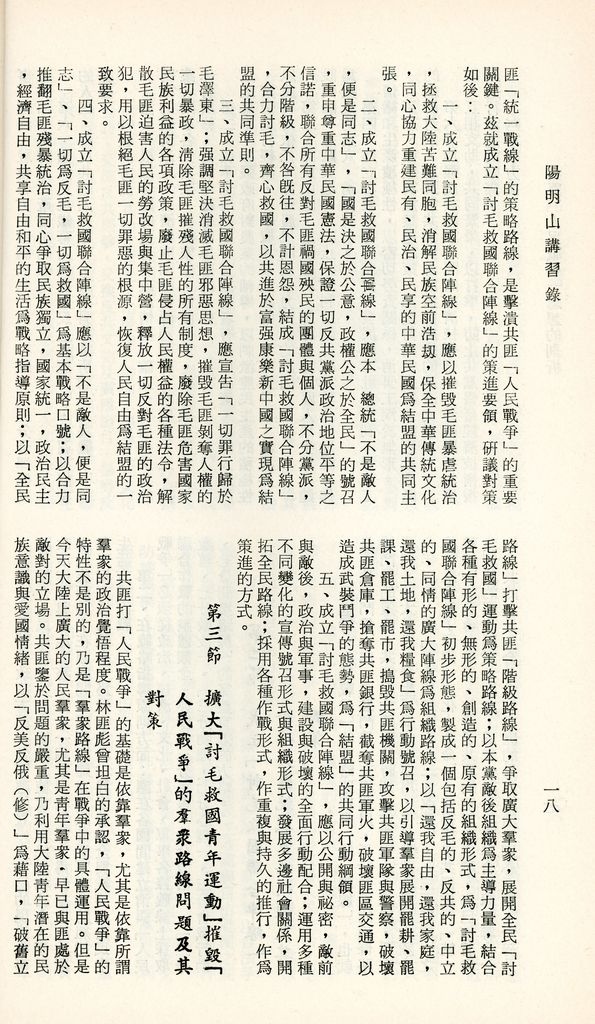 陽明山講習錄
匪「統一戰線」的策略路線，是擊潰共匪「人民戰爭」的重要
關鍵。茲就成立「討毛救國聯合陣線」的策進要領，研議對策
如後：
一、成立「討毛救國聯合陣線」，應以摧毀毛匪暴虐統治
，拯救大陸苦難同胞，消解民族空前浩刼，保全中華傳統文化
，同心協力重建民有、民治、民享的中華民國爲結盟的共同主
張。
二、成立「討毛救國聯合陣線」，應本　總統「不是敵人
，便是同志」，「國是決之於公意，政權公之於全民」的號召
，重申尊重中華民國憲法，保證一切反共黨派政治地位平等之
信諾，聯合所有反對毛匪禍國殃民的團體與個人，不分黨派，
不分階級，不咎旣往，不計恩怨，結成「討毛救國聯合陣線」
，合力討毛，齊心救國，以共進於富强康樂新中國之實現爲結
盟的共同準則。
三、成立「討毛救國聯合陣線」，應宣告「一切罪行歸於
毛澤東」；強調堅決消滅毛匪邪惡思想，摧毀毛匪剝奪人權的
一切暴政，清除毛匪摧殘人性的所有制度，廢除毛匪危害國家
民族利益的各項政策，廢止毛匪侵占人民權益的各種法令，解
散毛匪迫害人民的勞改場與集中營，釋放一切反對毛匪的政治
犯，用以根絕毛匪一切罪惡的根源，恢復人民自由爲結盟的一
致要求。
四、成立「討毛救國聯合陣線」應以「不是敵人，便是同
志」、「一切爲反毛，一切爲救國」爲基本戰略口號；以合力
推翻毛匪殘暴統治，同心爭取民族獨立，國家統一，政治民主
，經濟自由，共享自由和平的生活爲戰略指導原則；以「全民
路線」打擊共匪「階級路線」，爭取廣大羣衆，展開全民「討
毛救國」運動爲策略路線；以本黨敵後組織爲主導力量，結合
各種有形的、無形的、創造的、原有的組織形式，爲「討毛救
國聯合陣線」初步形態，製成一個包括反毛的、反共的、中立
的、同情的廣大陣線爲組織路線；以「還我自由，還我家庭，
還我土地，還我糧食」爲行動號召，以引導羣衆展開罷耕、罷
課、罷工、罷市，搗毀共匪機關，攻擊共匪軍隊與警察，破壞
共匪倉庫，搶奪共匪銀行，截奪共匪軍火，破壞匪區交通，以
造成武裝鬥爭的態勢，爲「結盟」的共同行動綱領。
五、成立「討毛救國聯合陣線」，應以公開與祕密，敵前
與敵後，政治與軍事，建設與破壞的全面行動配合；運用多種
不同變化的宣傳號召形式與組織形式；發展多邊社會關係，開
拓全民路線；採用各種作戰形式，作重複與持久的推行，作爲
策進的方式。
第三節　擴大「討毛救國青年運動」摧毀「
人民戰爭」的羣衆路線問題及其
對策
共匪打「人民戰爭」的基礎是依靠羣衆，尤其是依靠所謂
羣衆的政治覺悟程度。林匪彪曾坦白的承認，「人民戰爭」的
特性不是別的，乃是「羣衆路線」在戰爭中的具體運用。但是
今天大陸上廣大的人民羣衆，尤其是青年羣衆，早已與匪處於
敵對的立場。共匪鑒於問題的嚴重，乃利用大陸青年潛在的民
族意識與愛國情緒，以「反美反俄（修）」爲藉口，「破舊立
一八